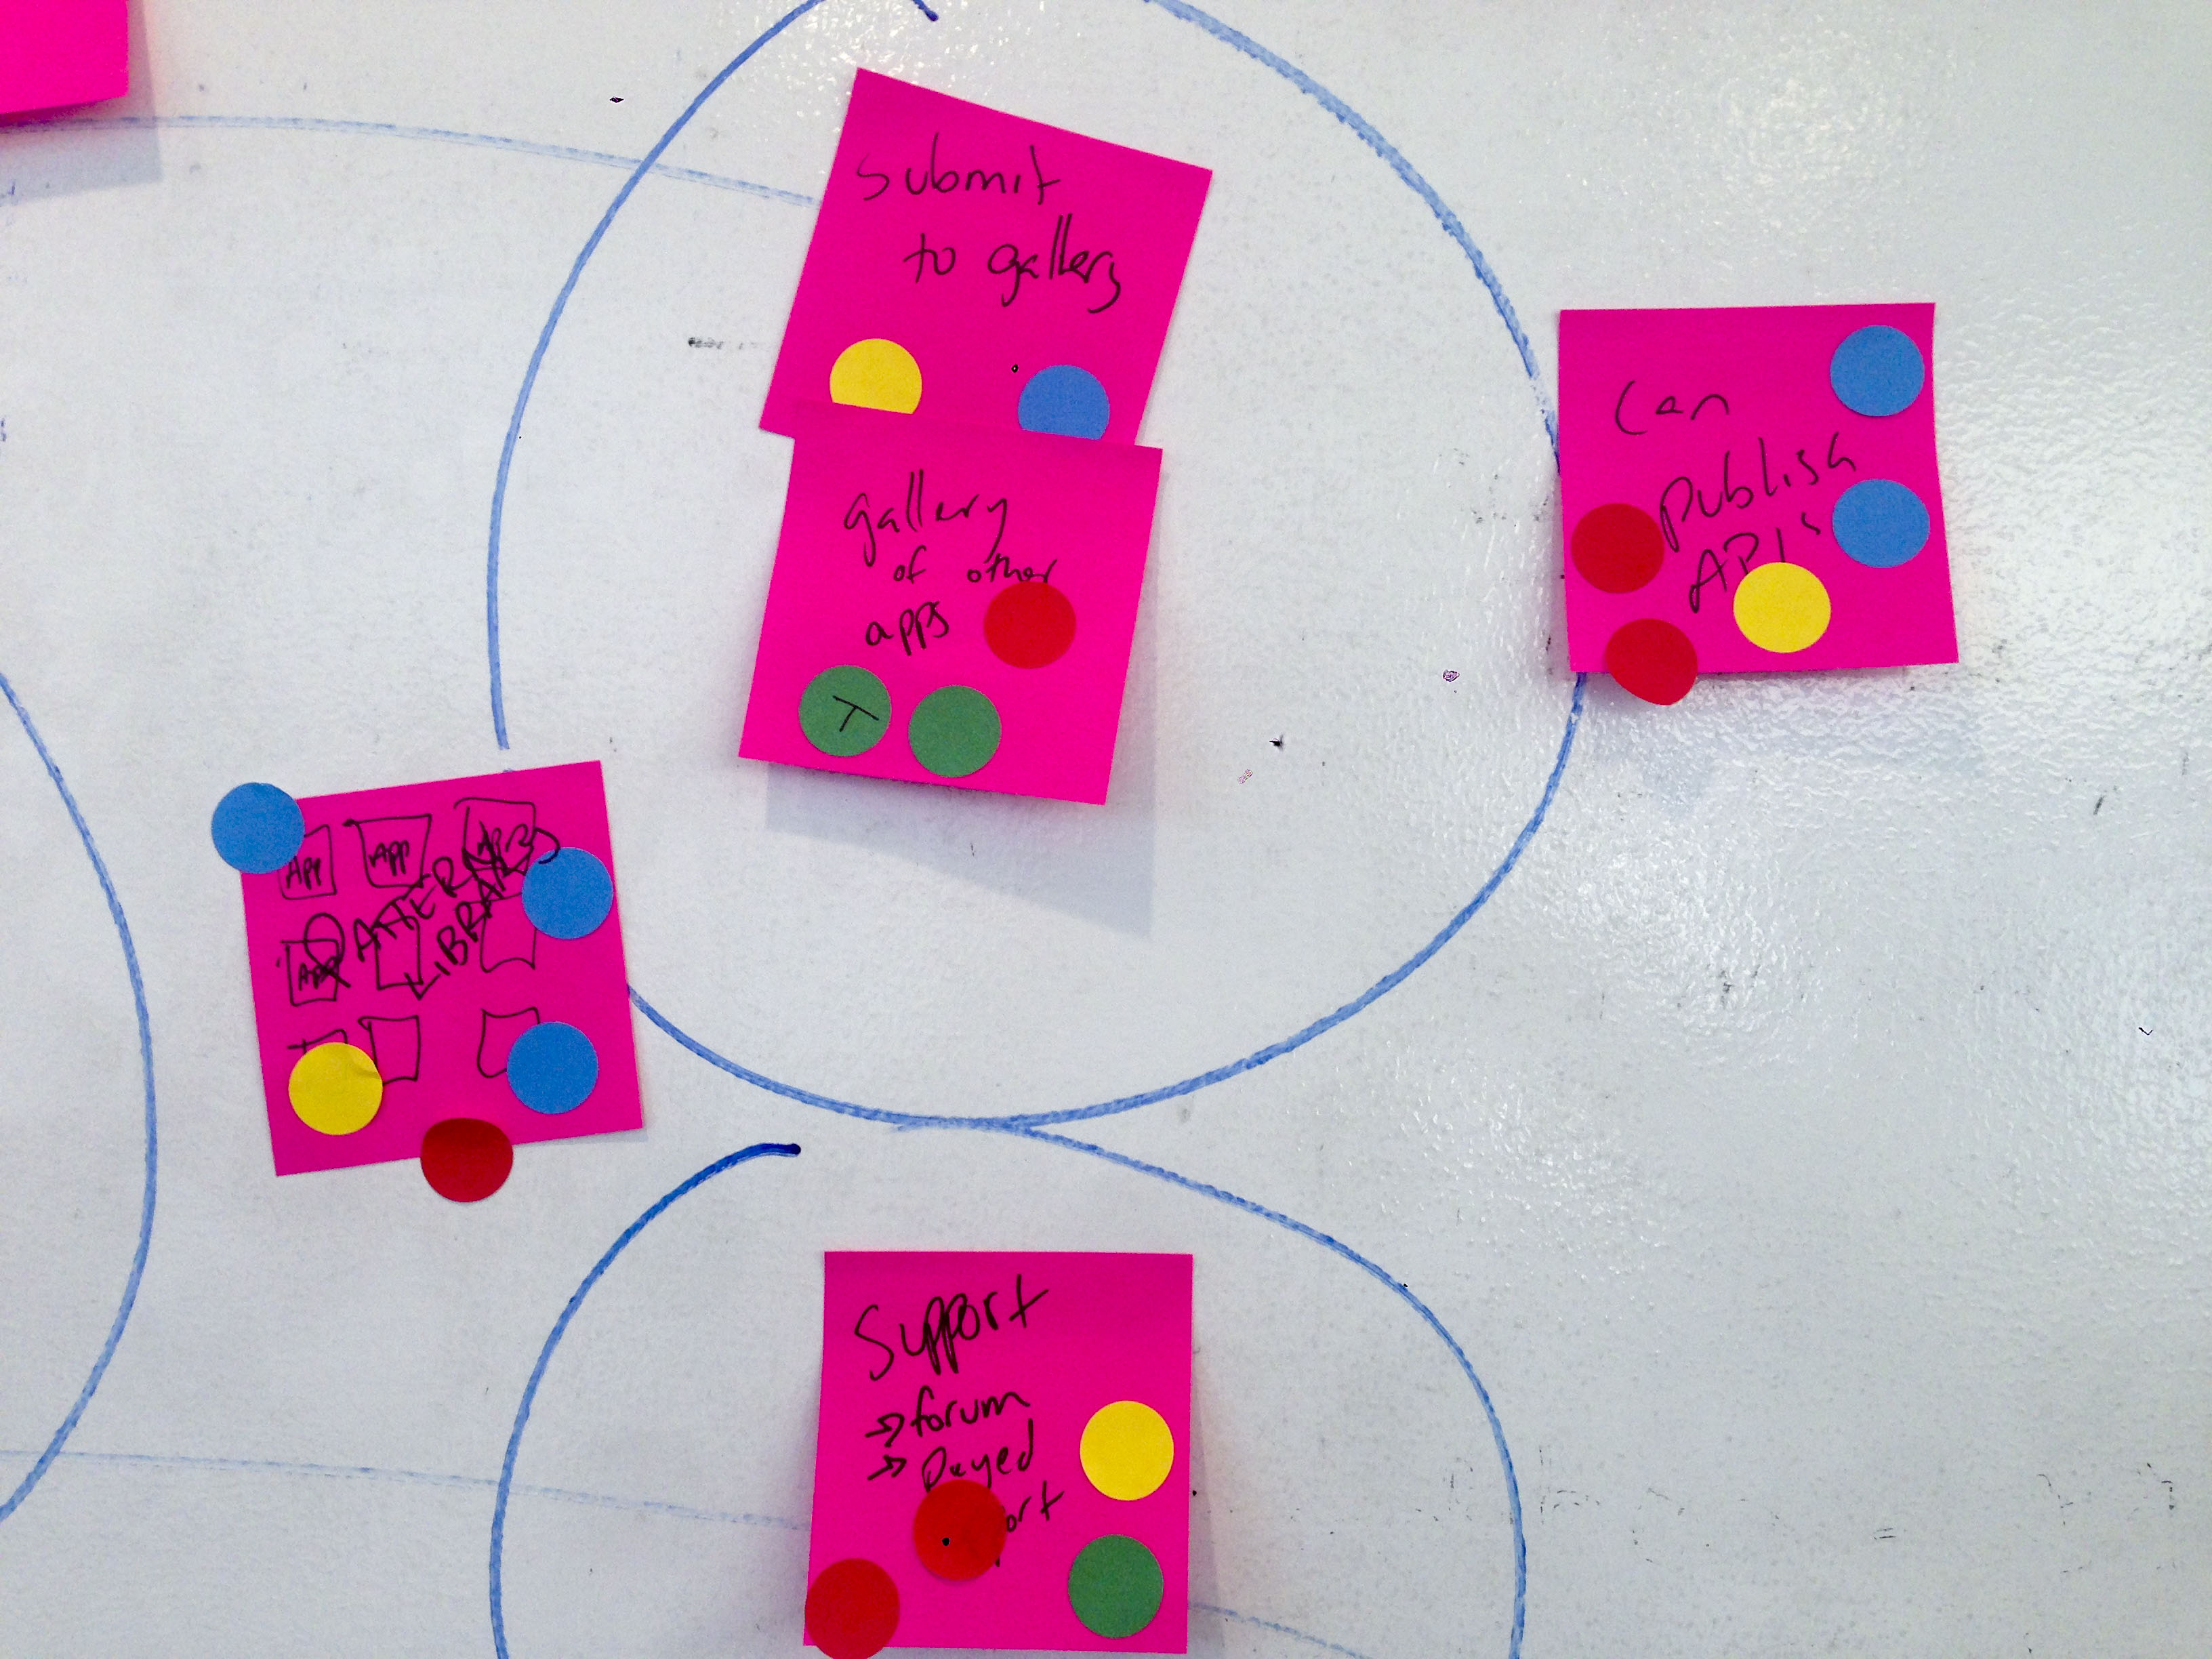 submit
to gallery
gallery
of other
apps
T
Can
publish
API's
App
App
App
PATTERN
LIBRARY
Support
→ forum
→ Payed
ort